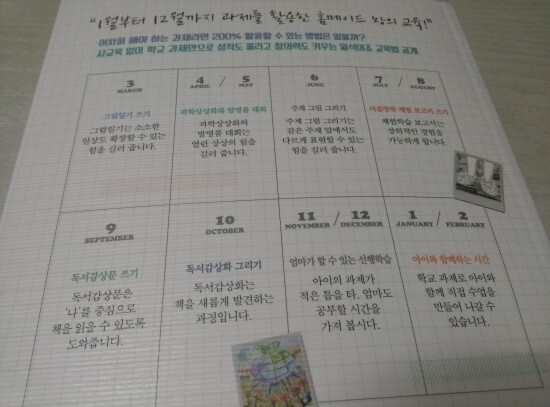 "1월부터 12월까지 과제를 활용한 홈메이드 창의 교육!"
어차피 해야 하는 과제라면 200% 활용할 수 있는 방법은 없을까?
사교육 없이 학교 과제만으로 성적도 올리고 창의력도 키우는 일석이조 교육법 공개
3
MARCH
그림일기 쓰기
그림일기는 소소한
일상도 확장할 수 있는
힘을 길러 줍니다.
4 / 5
APRIL / MAY
과학상상화와 발명품 대회
과학상상화와
발명품 대회는
열린 상상의 힘을
길러 줍니다.
6
JUNE
주제 그림 그리기
주제 그림 그리기는
같은 주제 앞에서도
다르게 표현할 수 있는
힘을 길러 줍니다.
7 / 8
JULY / AUGUST
여름방학 체험 보고서 쓰기
체험학습 보고서는
창의적인 경험을
가능하게 합니다.
9
SEPTEMBER
독서감상문 쓰기
독서감상문은
'나'를 중심으로
책을 읽을 수 있도록
도와줍니다.
10
OCTOBER
독서감상화 그리기
독서감상화는
책을 새롭게 발견하는
과정입니다.
11 / 12
NOVEMBER / DECEMBER
엄마가 할 수 있는 선행학습
아이의 과제가
적은 틈을 타, 엄마도
공부할 시간을
가져 봅시다.
1 / 2
JANUARY / FEBRUARY
아이와 함께하는 시간
학교 과제로 아이와
함께 직접 수업을
만들어 나갈 수
있습니다.